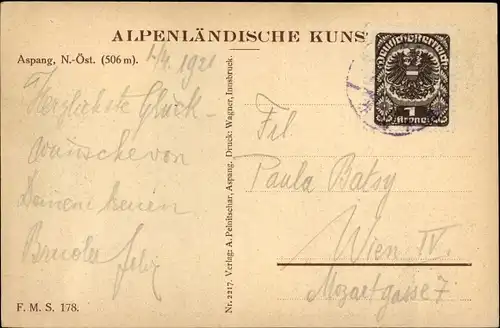 ALPENLÄNDISCHE KUNS
Aspang, N.-Öst. (506 m).
1/4. 1921
Herzlichste Glück-
wünsche von
Deinem treuen
Bruder Felix
F. M. S. 178.
Nr. 2217. Verlag: A. Pelnitschar, Aspang. Druck: Wagner, Innsbruck.
Deutschösterreich
1
Krone
Frl.
Paula Batsy
Wien IV.
Mozartgasse 7